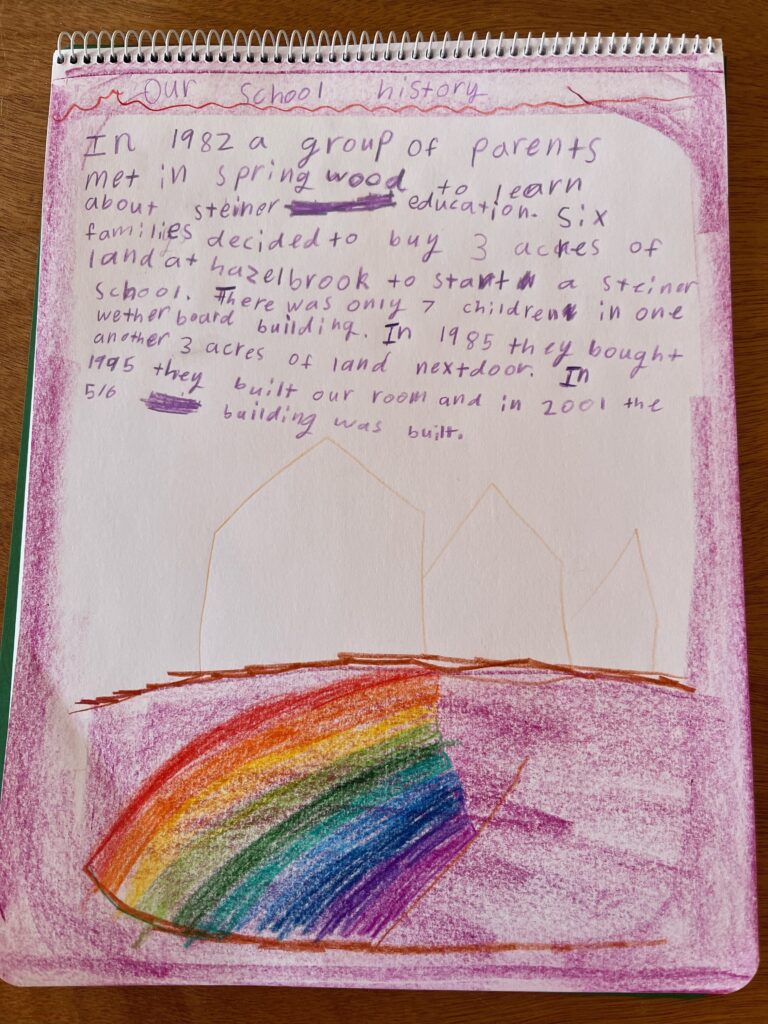 Our school history
In 1982 a group of parents
met in spring wood to learn
about steiner education. Six
families decided to buy 3 acres of
land at hazelbrook to start a steiner
school. There was only 7 children in one
wether board building. In 1985 they bought
another 3 acres of land nextdoor. In
1995 they built our room and in 2001 the
5/6 building was built.